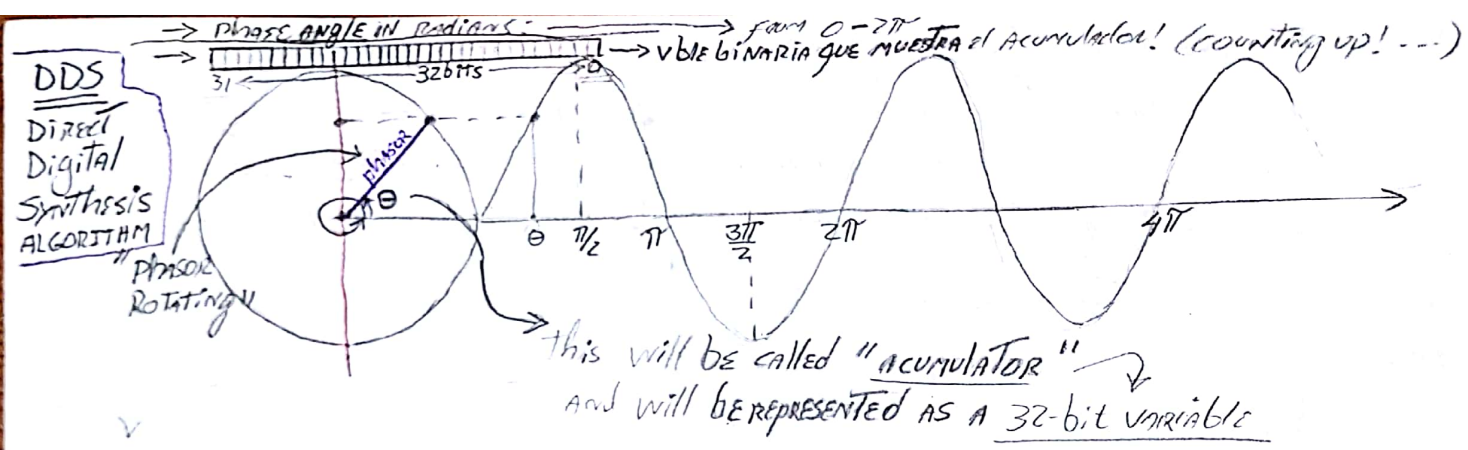 PHASE ANGLE IN RADIANS: FROM 0-2π
VBLE BINARIA QUE MUESTRA el ACUMULADOR! (COUNTING UP! ...)
31 32 bits 0
DDS
DIRECT
DIGITAL
SYNTHESIS
ALGORITHM
phasor
θ
θ π/2 π 3π/2 2π 4π
"PHASOR
ROTATING"
this will be called "ACUMULATOR"
And will be REPRESENTED AS A 32-bit VARIABLE